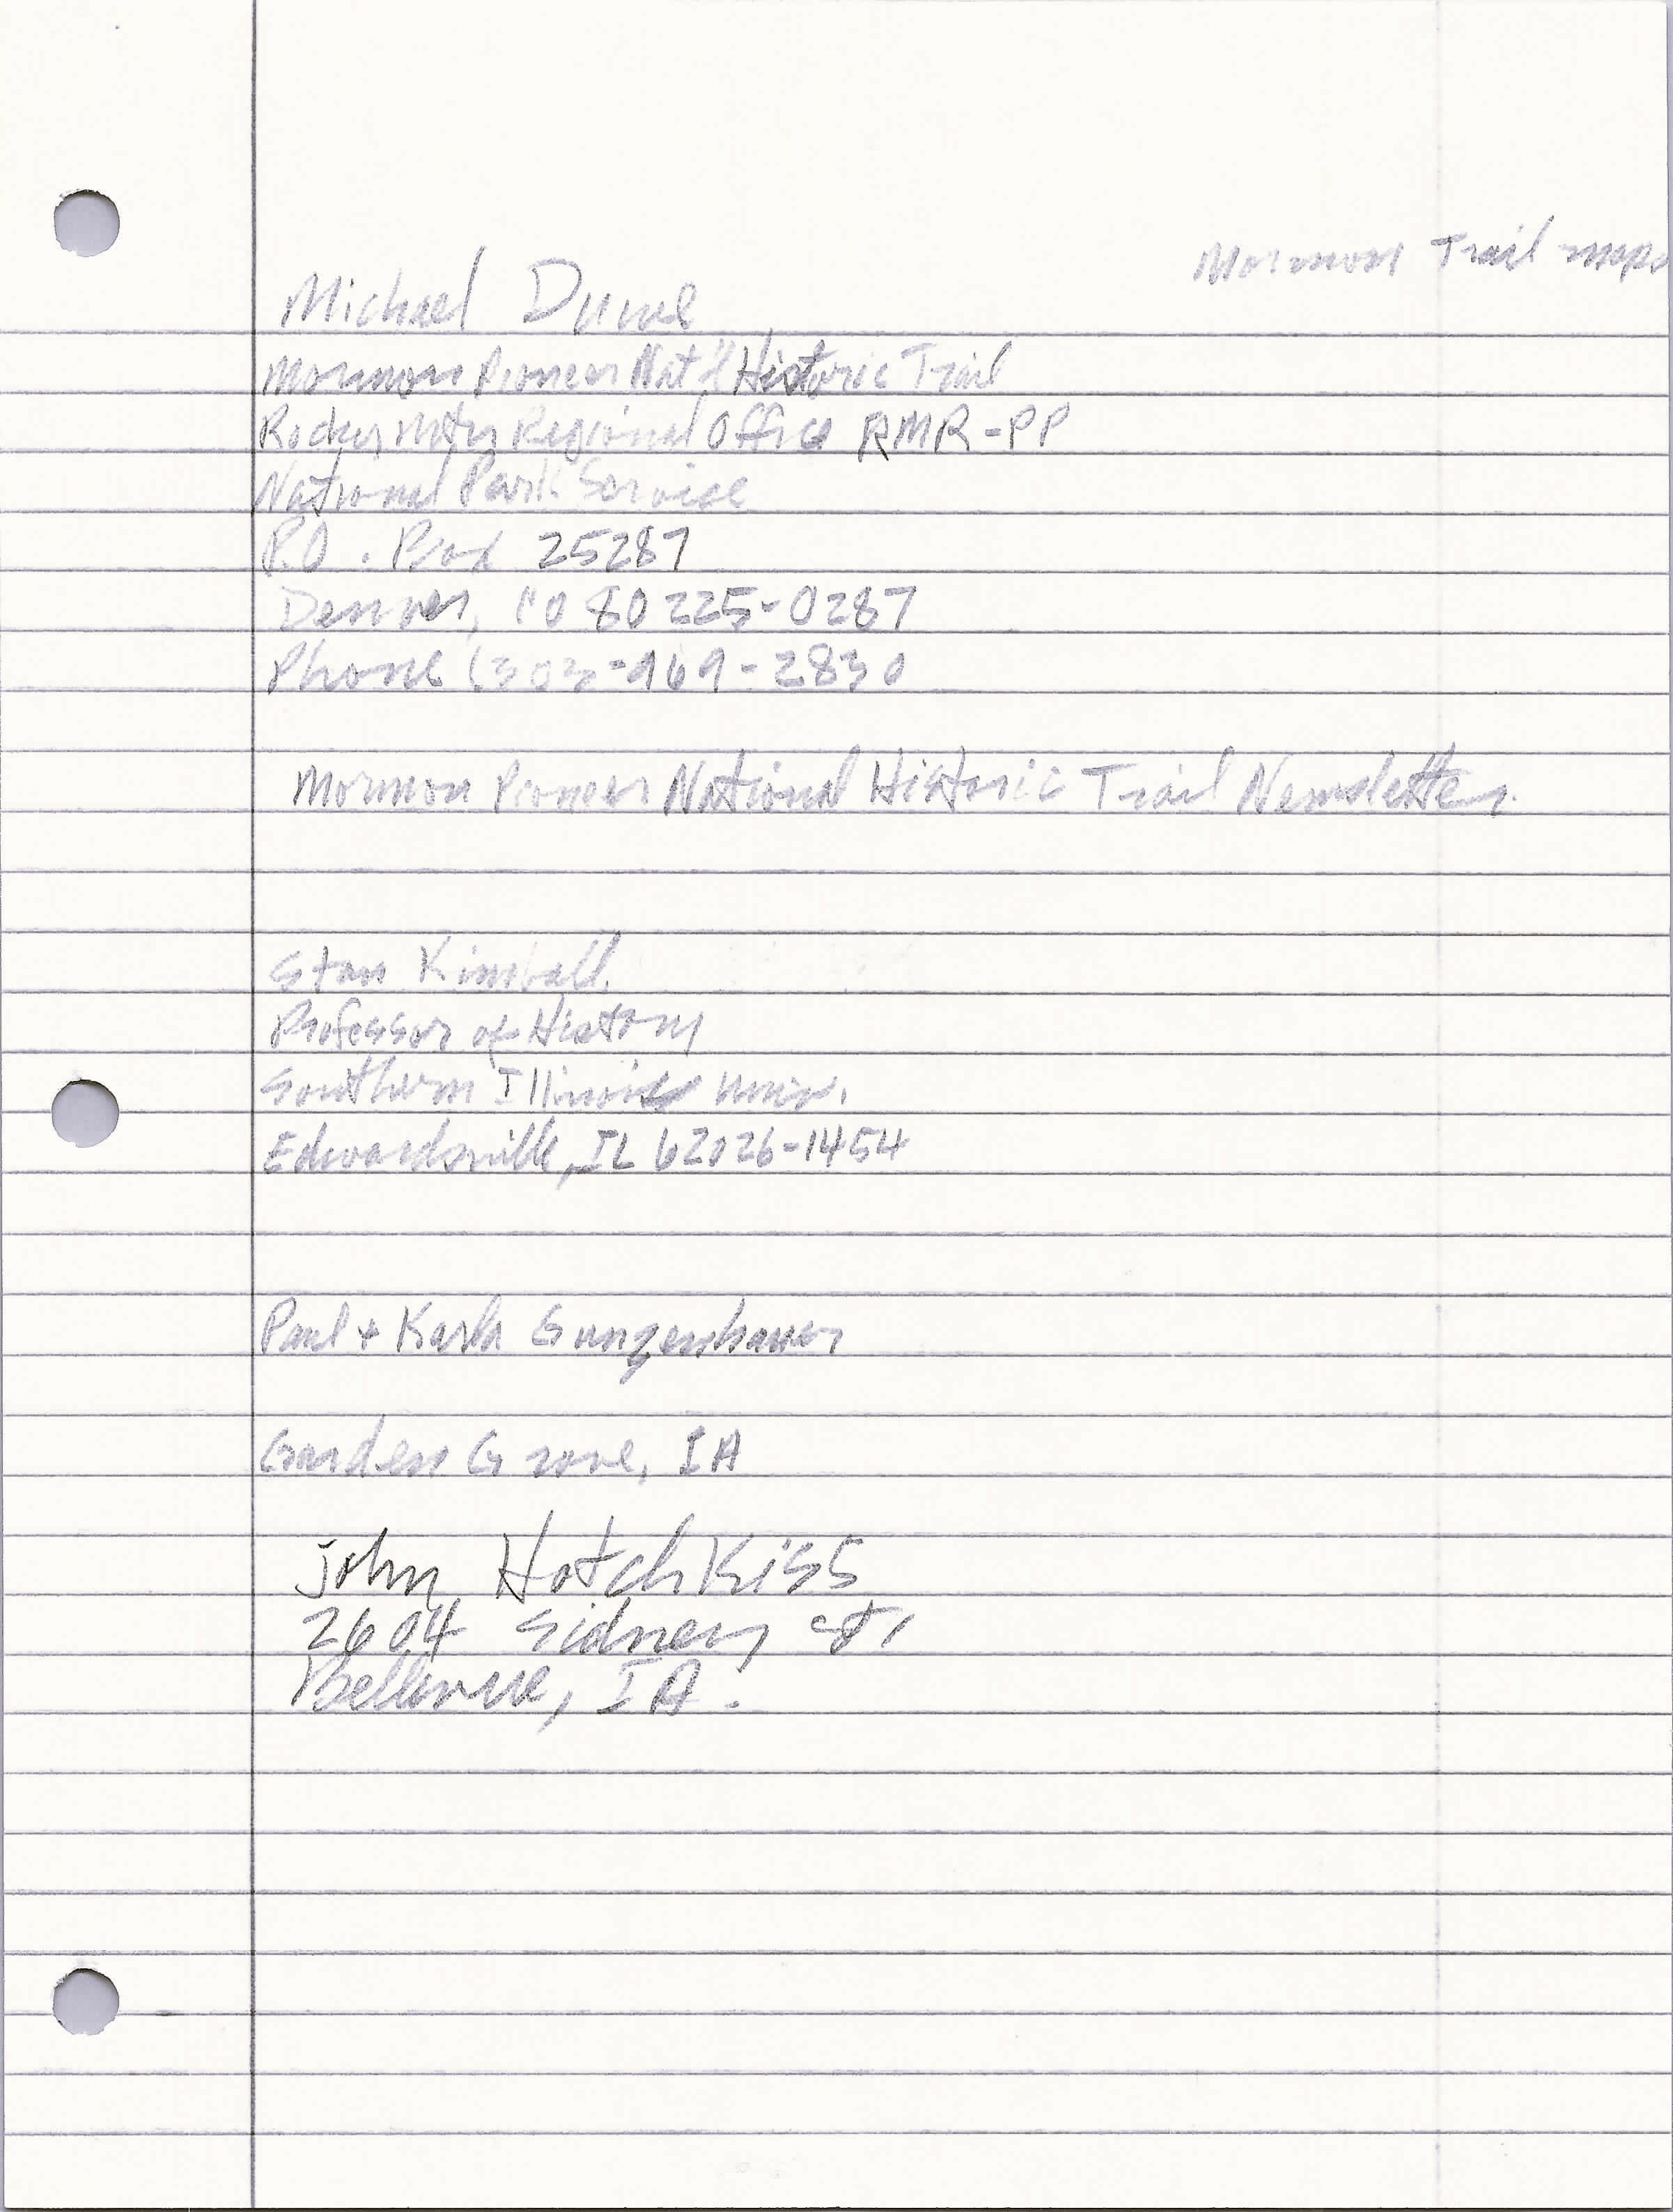 Mormon Trail maps
Michael Duwe
Mormon Pioneer Nat'l Historic Trail
Rocky Mtn Regional Office RMR-PP
National Park Service
P.O. Box 25287
Denver, CO 80225-0287
Phone (303-969-2830
Mormon Pioneer National Historic Trail Newsletter.
Stan Kimball.
Professor of History
Southern Illinois Univ.
Edwardsville, IL 62026-1454
Paul + Karla Gunzenhauser
Garden Grove, IA
John HotchKiss
2604 Sidney St.
Bellevue, IA.